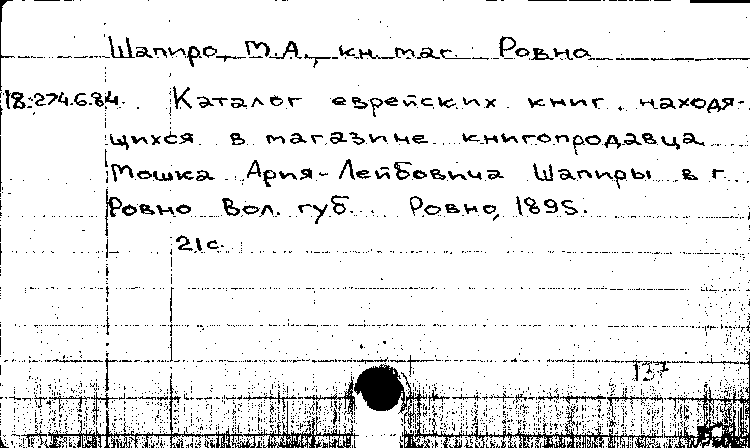 Шапиро, М.А., кн. маг. Ровно
18.274.6.84. Каталог еврейских книг, находя-
щихся в магазине книгопродавца
Мошка Ария-Лейбовича Шапиры в г.
Ровно Вол. губ. Ровно, 1895.
21с.
137